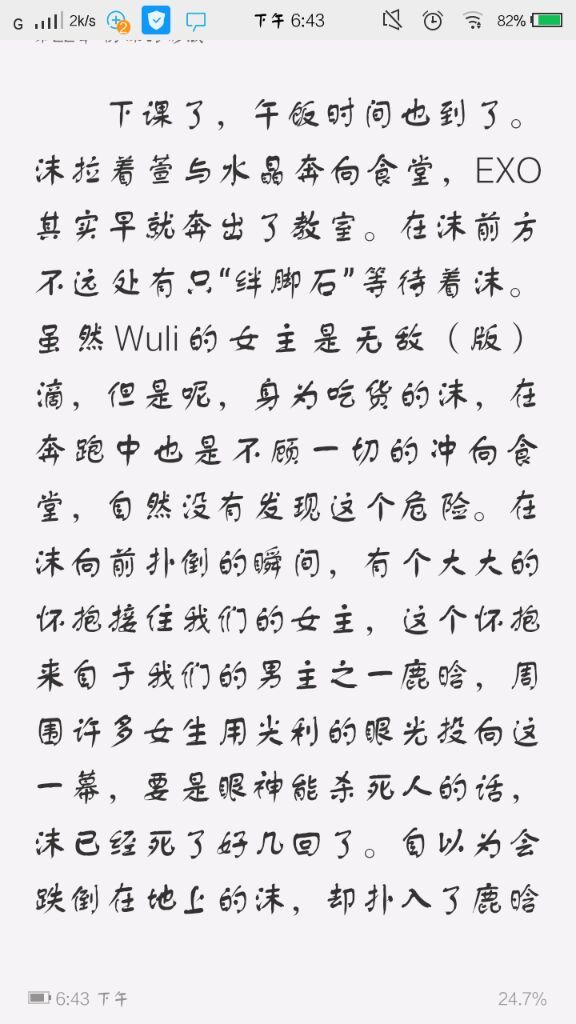 G 2k/s 2 下午 6:43 82%
下课了，午饭时间也到了。
沫拉着萱与水晶奔向食堂，EXO
其实早就奔出了教室。在沫前方
不远处有只“绊脚石”等待着沫。
虽然Wuli的女主是无敌（版）
滴，但是呢，身为吃货的沫，在
奔跑中也是不顾一切的冲向食
堂，自然没有发现这个危险。在
沫向前扑倒的瞬间，有个大大的
怀抱接住我们的女主，这个怀抱
来自于我们的男主之一鹿晗，周
围许多女生用尖利的眼光投向这
一幕，要是眼神能杀死人的话，
沫已经死了好几回了。自以为会
跌倒在地上的沫，却扑入了鹿晗
6:43 下午 24.7%